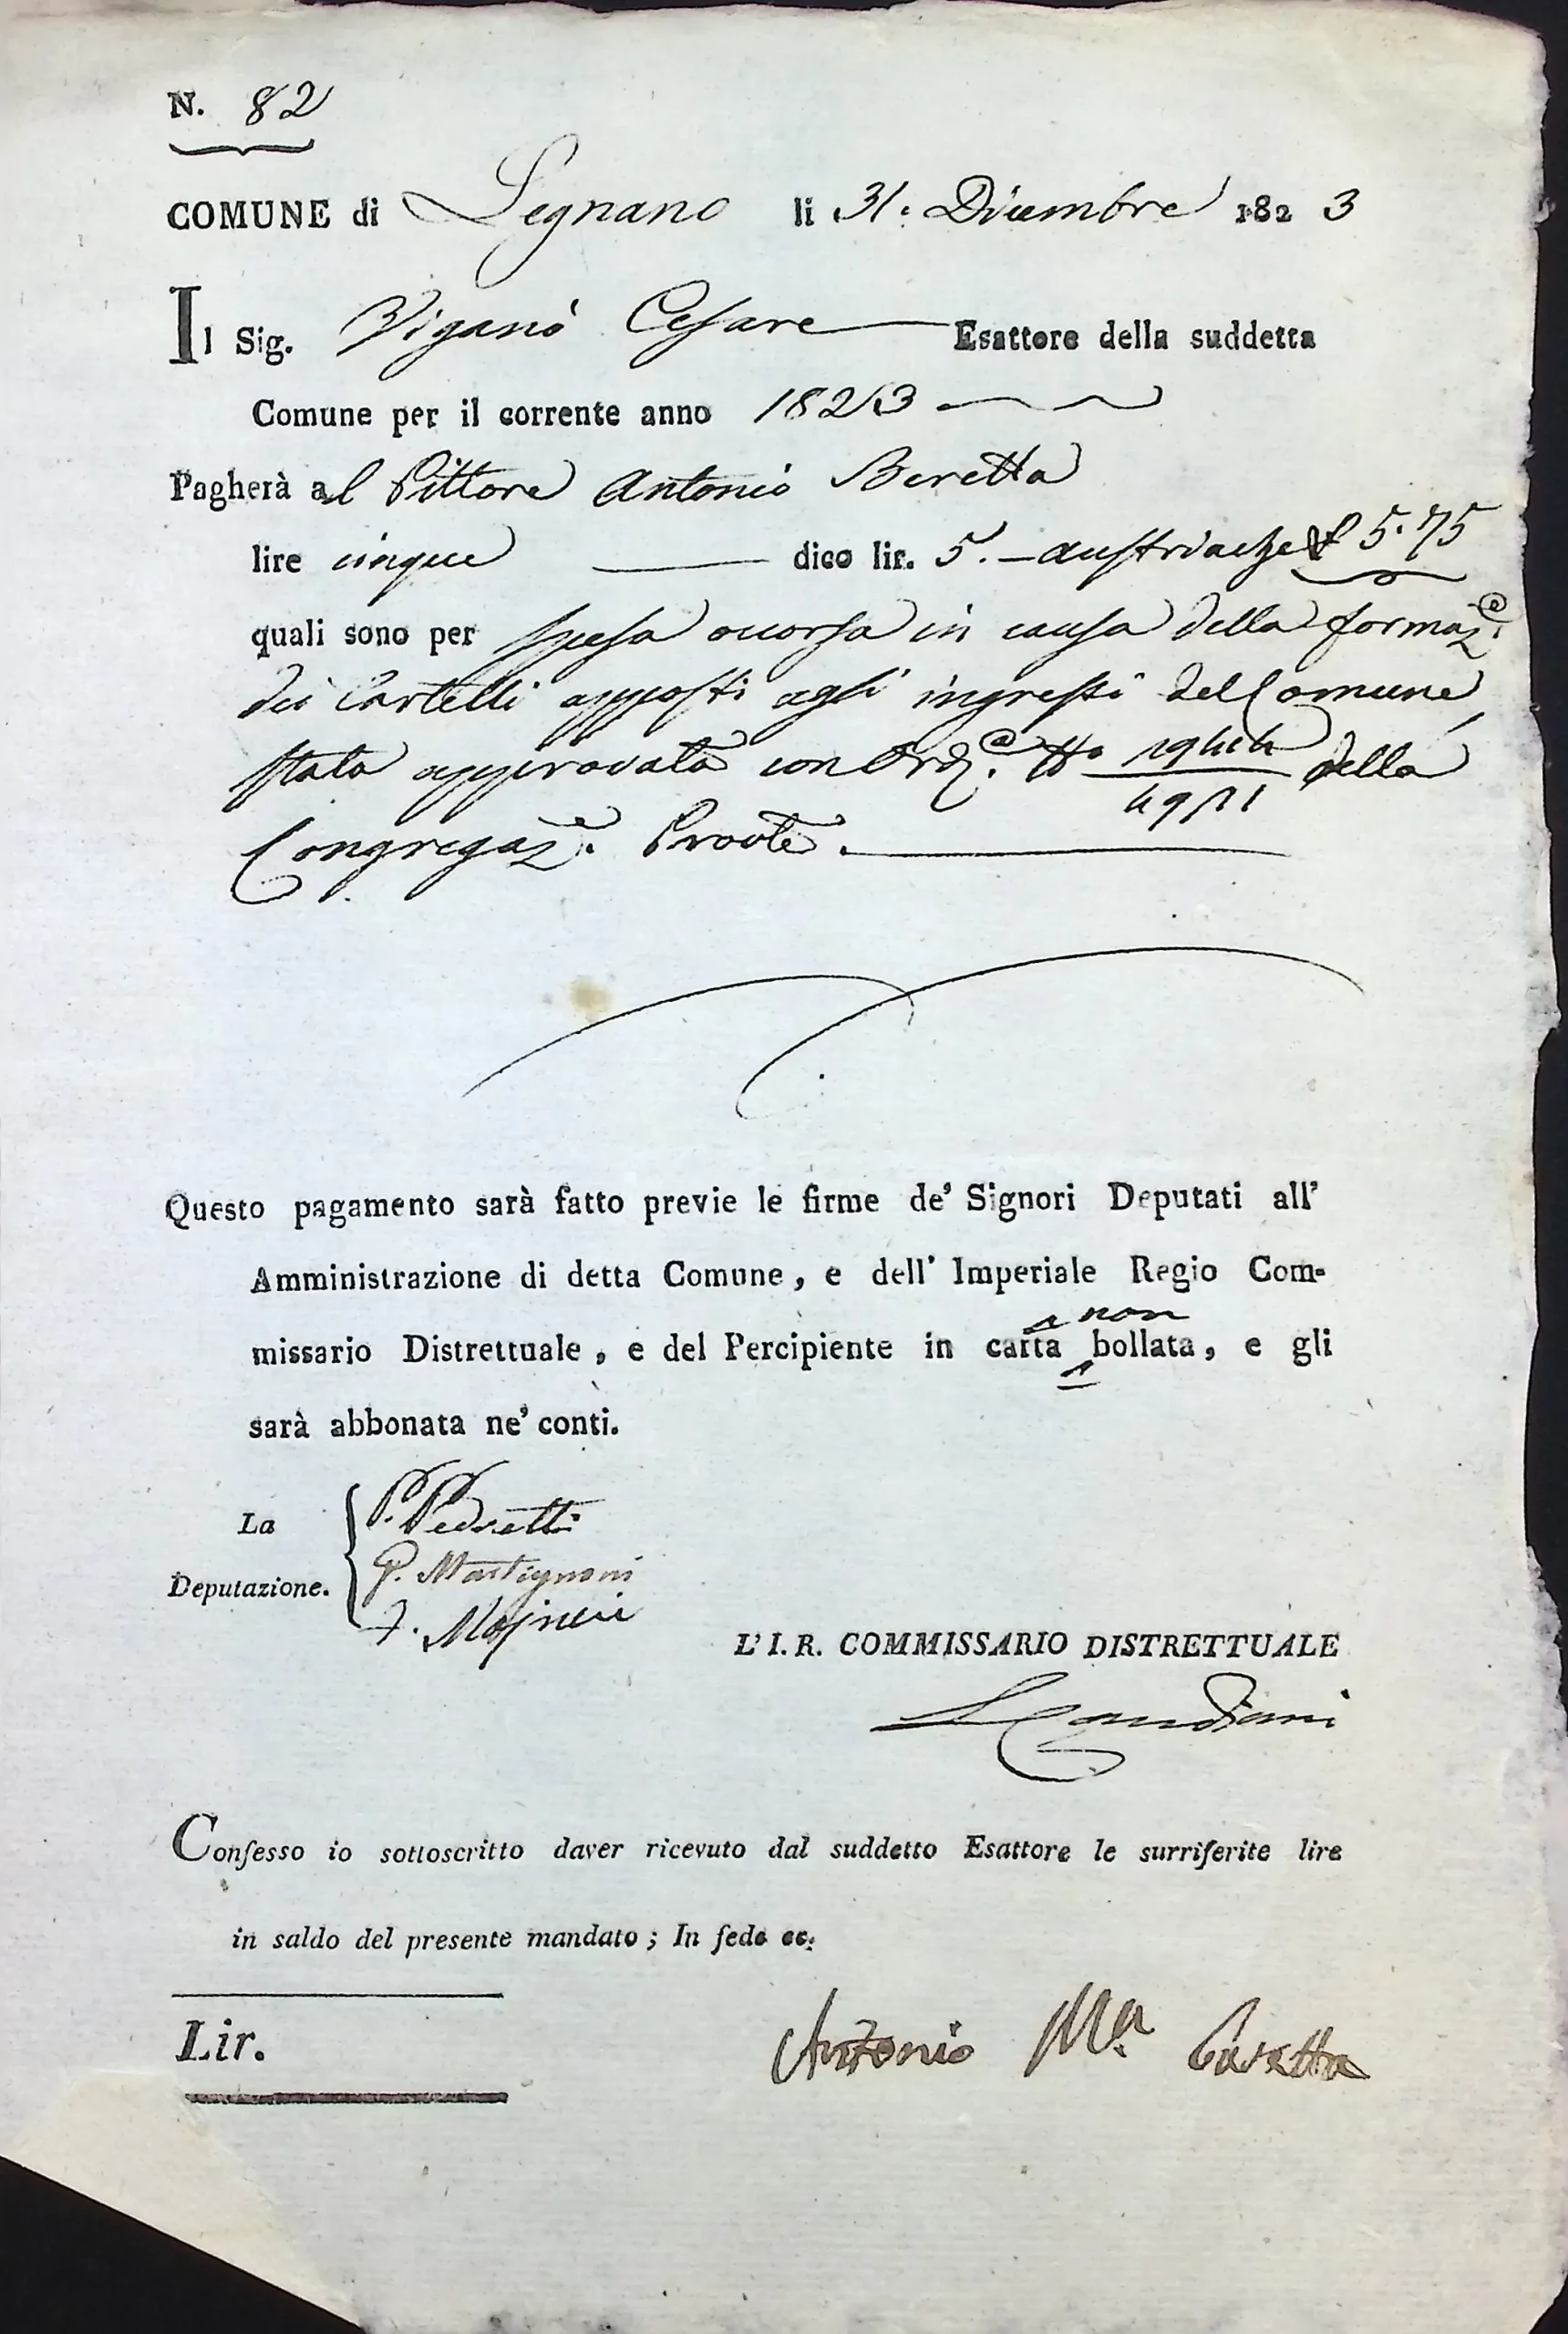 N. 82
COMUNE di Legnano li 31. Dicembre 1823
Il Sig. Viganò Cesare Esattore della suddetta
Comune per il corrente anno 1823
Pagherà al Pittore Antonio Beretta
lire cinque dico lir. 5. — austriache £ 5.75
quali sono per spesa occorsa in causa della formaz.e
dei Cartelli apposti agli ingressi del Comune
stata approvata con Ord.a N.o della
Congregaz.e Prov.le.
Questo pagamento sarà fatto previe le firme de' Signori Deputati all'
Amministrazione di detta Comune, e dell' Imperiale Regio Com-
missario Distrettuale, e del Percipiente in carta non bollata, e gli
sarà abbonata ne' conti.
La Deputazione.
P. Pedretti
P. Martignoni
L' I. R. COMMISSARIO DISTRETTUALE
Candiani
Confesso io sottoscritto daver ricevuto dal suddetto Esattore le surriferite lire
in saldo del presente mandato; In fede ec.
Lir.
Antonio M.a